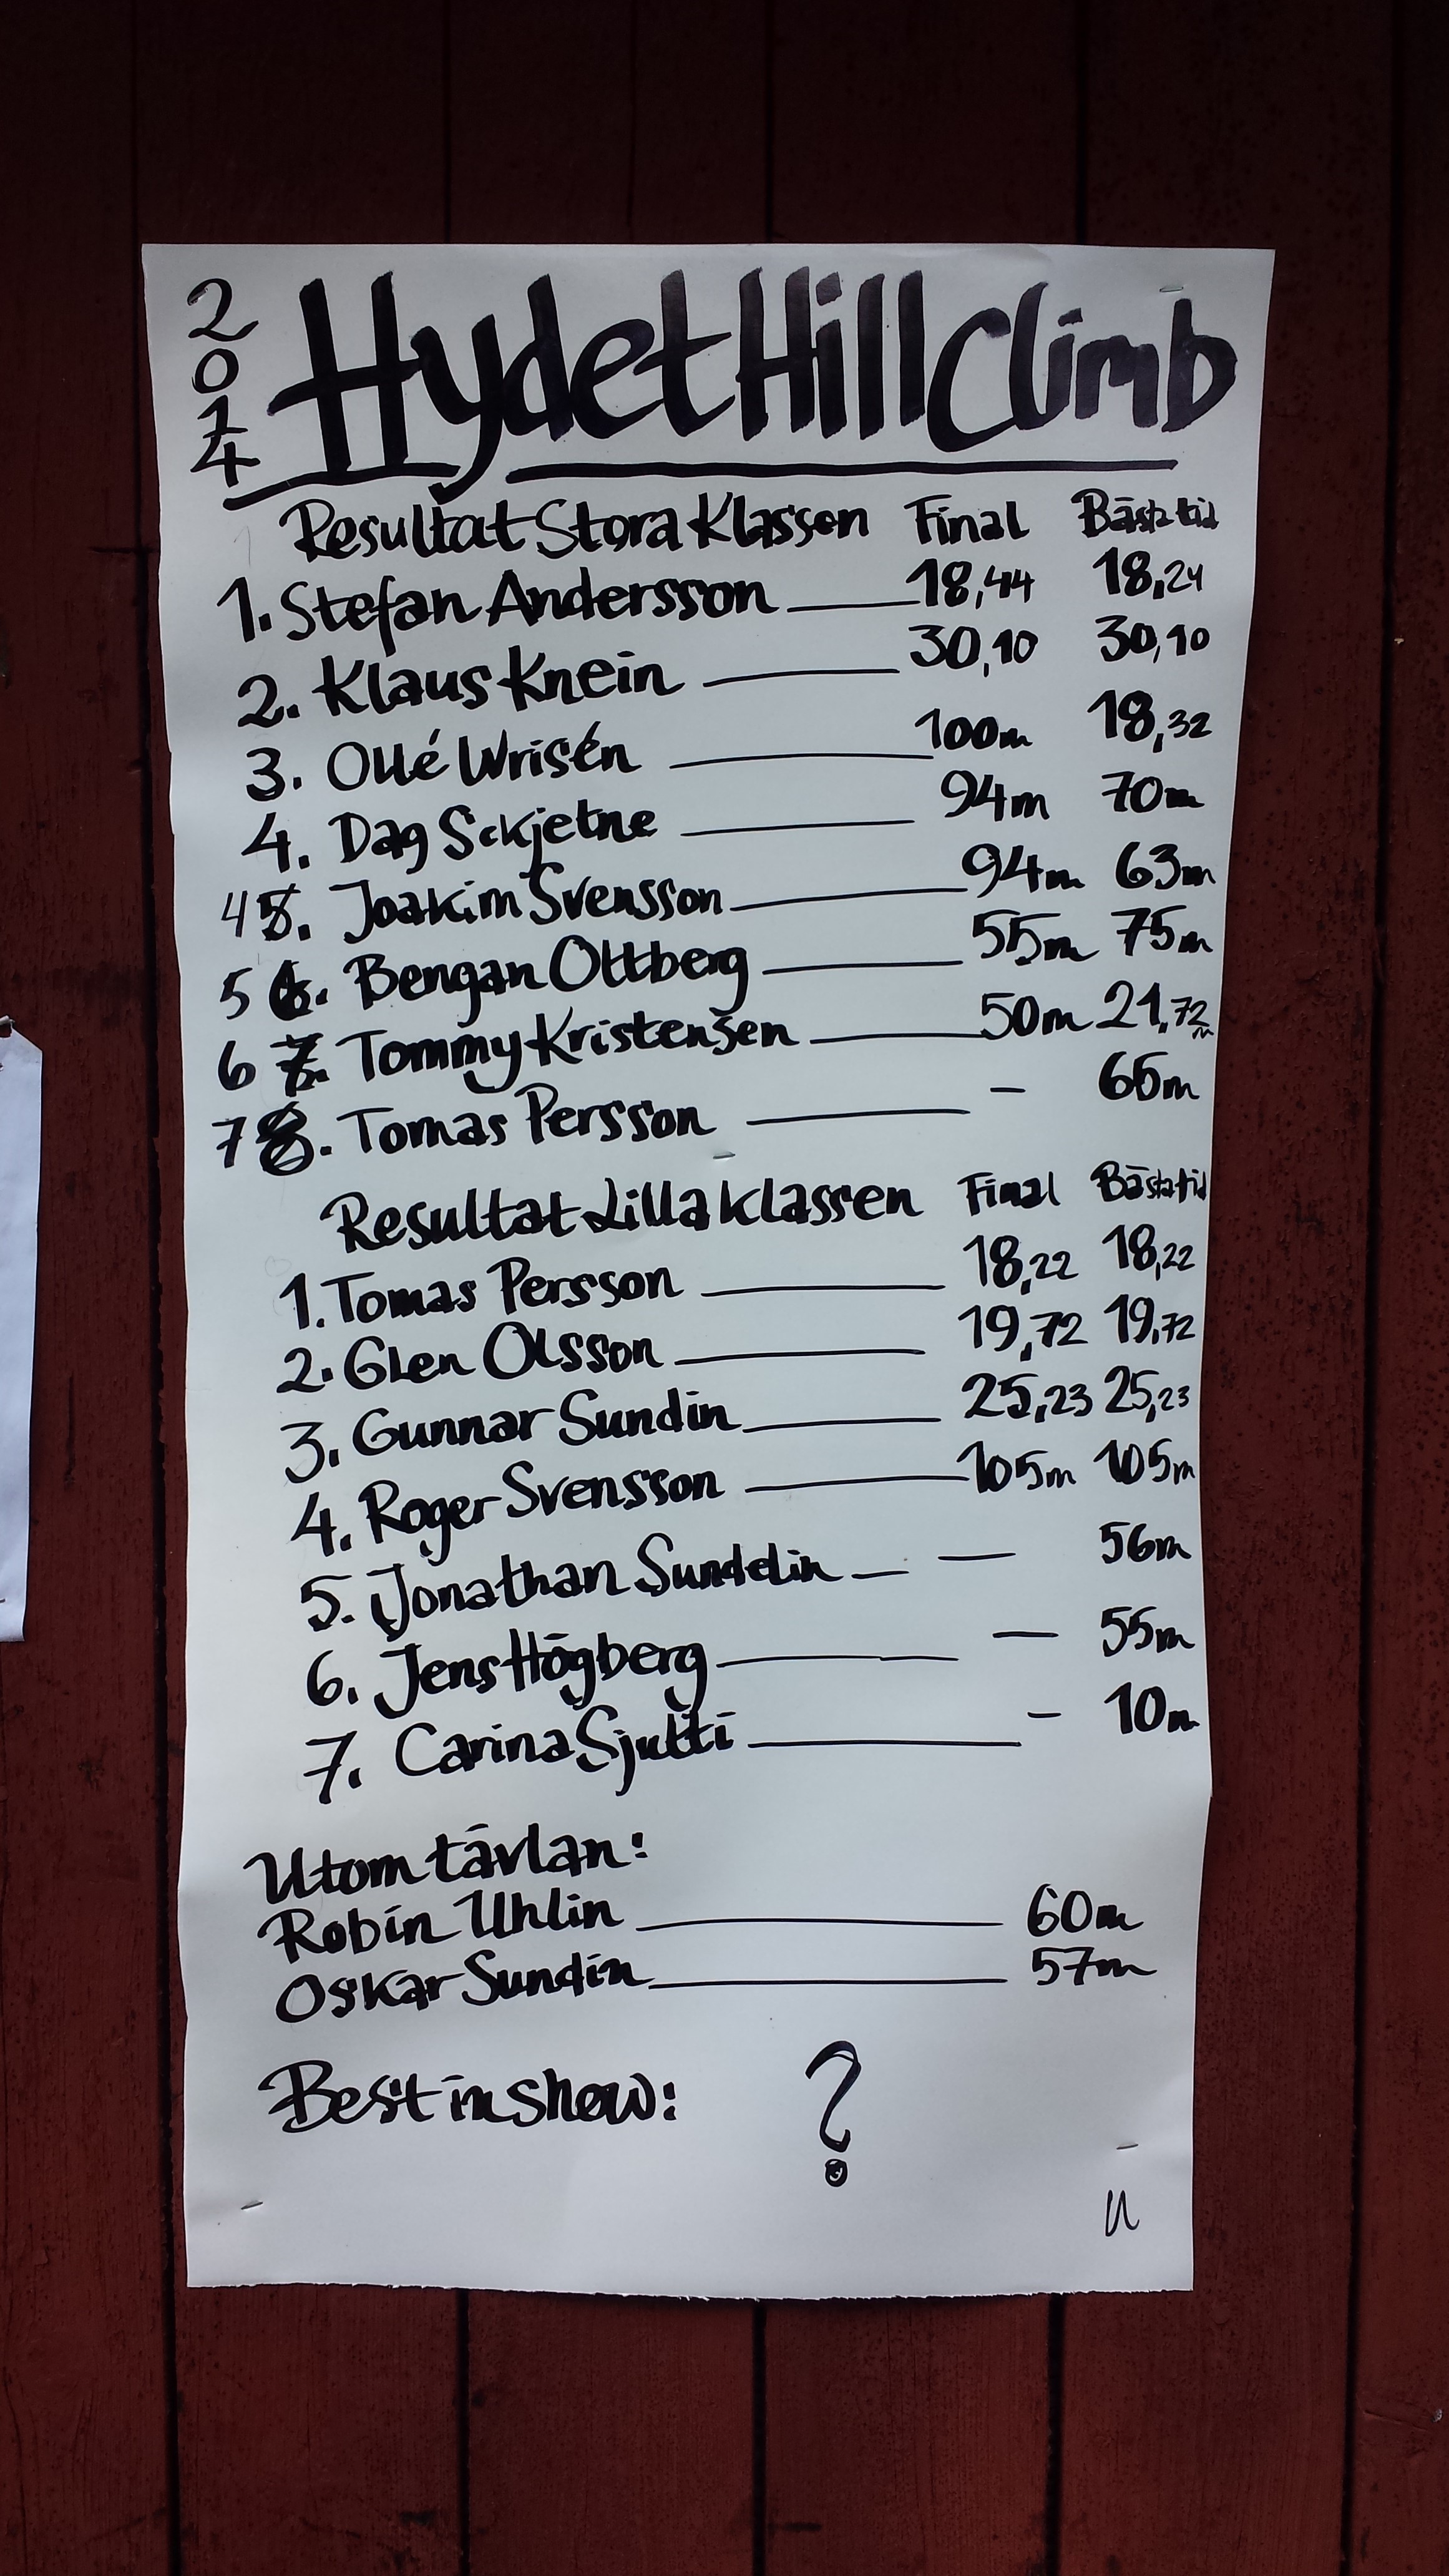 2014 Hydet Hill Climb
Resultat Stora Klassen Final Bästa tid
1. Stefan Andersson 18,44 18,24
2. Klaus Knein 30,10 30,10
3. Ollé Wrisén 100m 18,32
4. Dag Sckjetne 94m 70m
4 5. Joakim Svensson 94m 63m
5 6. Bengan Ottberg 55m 75m
6 7. Tommy Kristensen 50m 21,72
7 8. Tomas Persson — 65m
Resultat Lilla klassen Final Bästa tid
1. Tomas Persson 18,22 18,22
2. Glen Olsson 19,72 19,72
3. Gunnar Sundin 25,23 25,23
4. Roger Svensson 105m 105m
5. Jonathan Sundelin — 56m
6. Jens Högberg — 55m
7. Carina Sjutti — 10m
Utom tävlan:
Robin Uhlin 60m
Oskar Sundin 57m
Best in show: ?